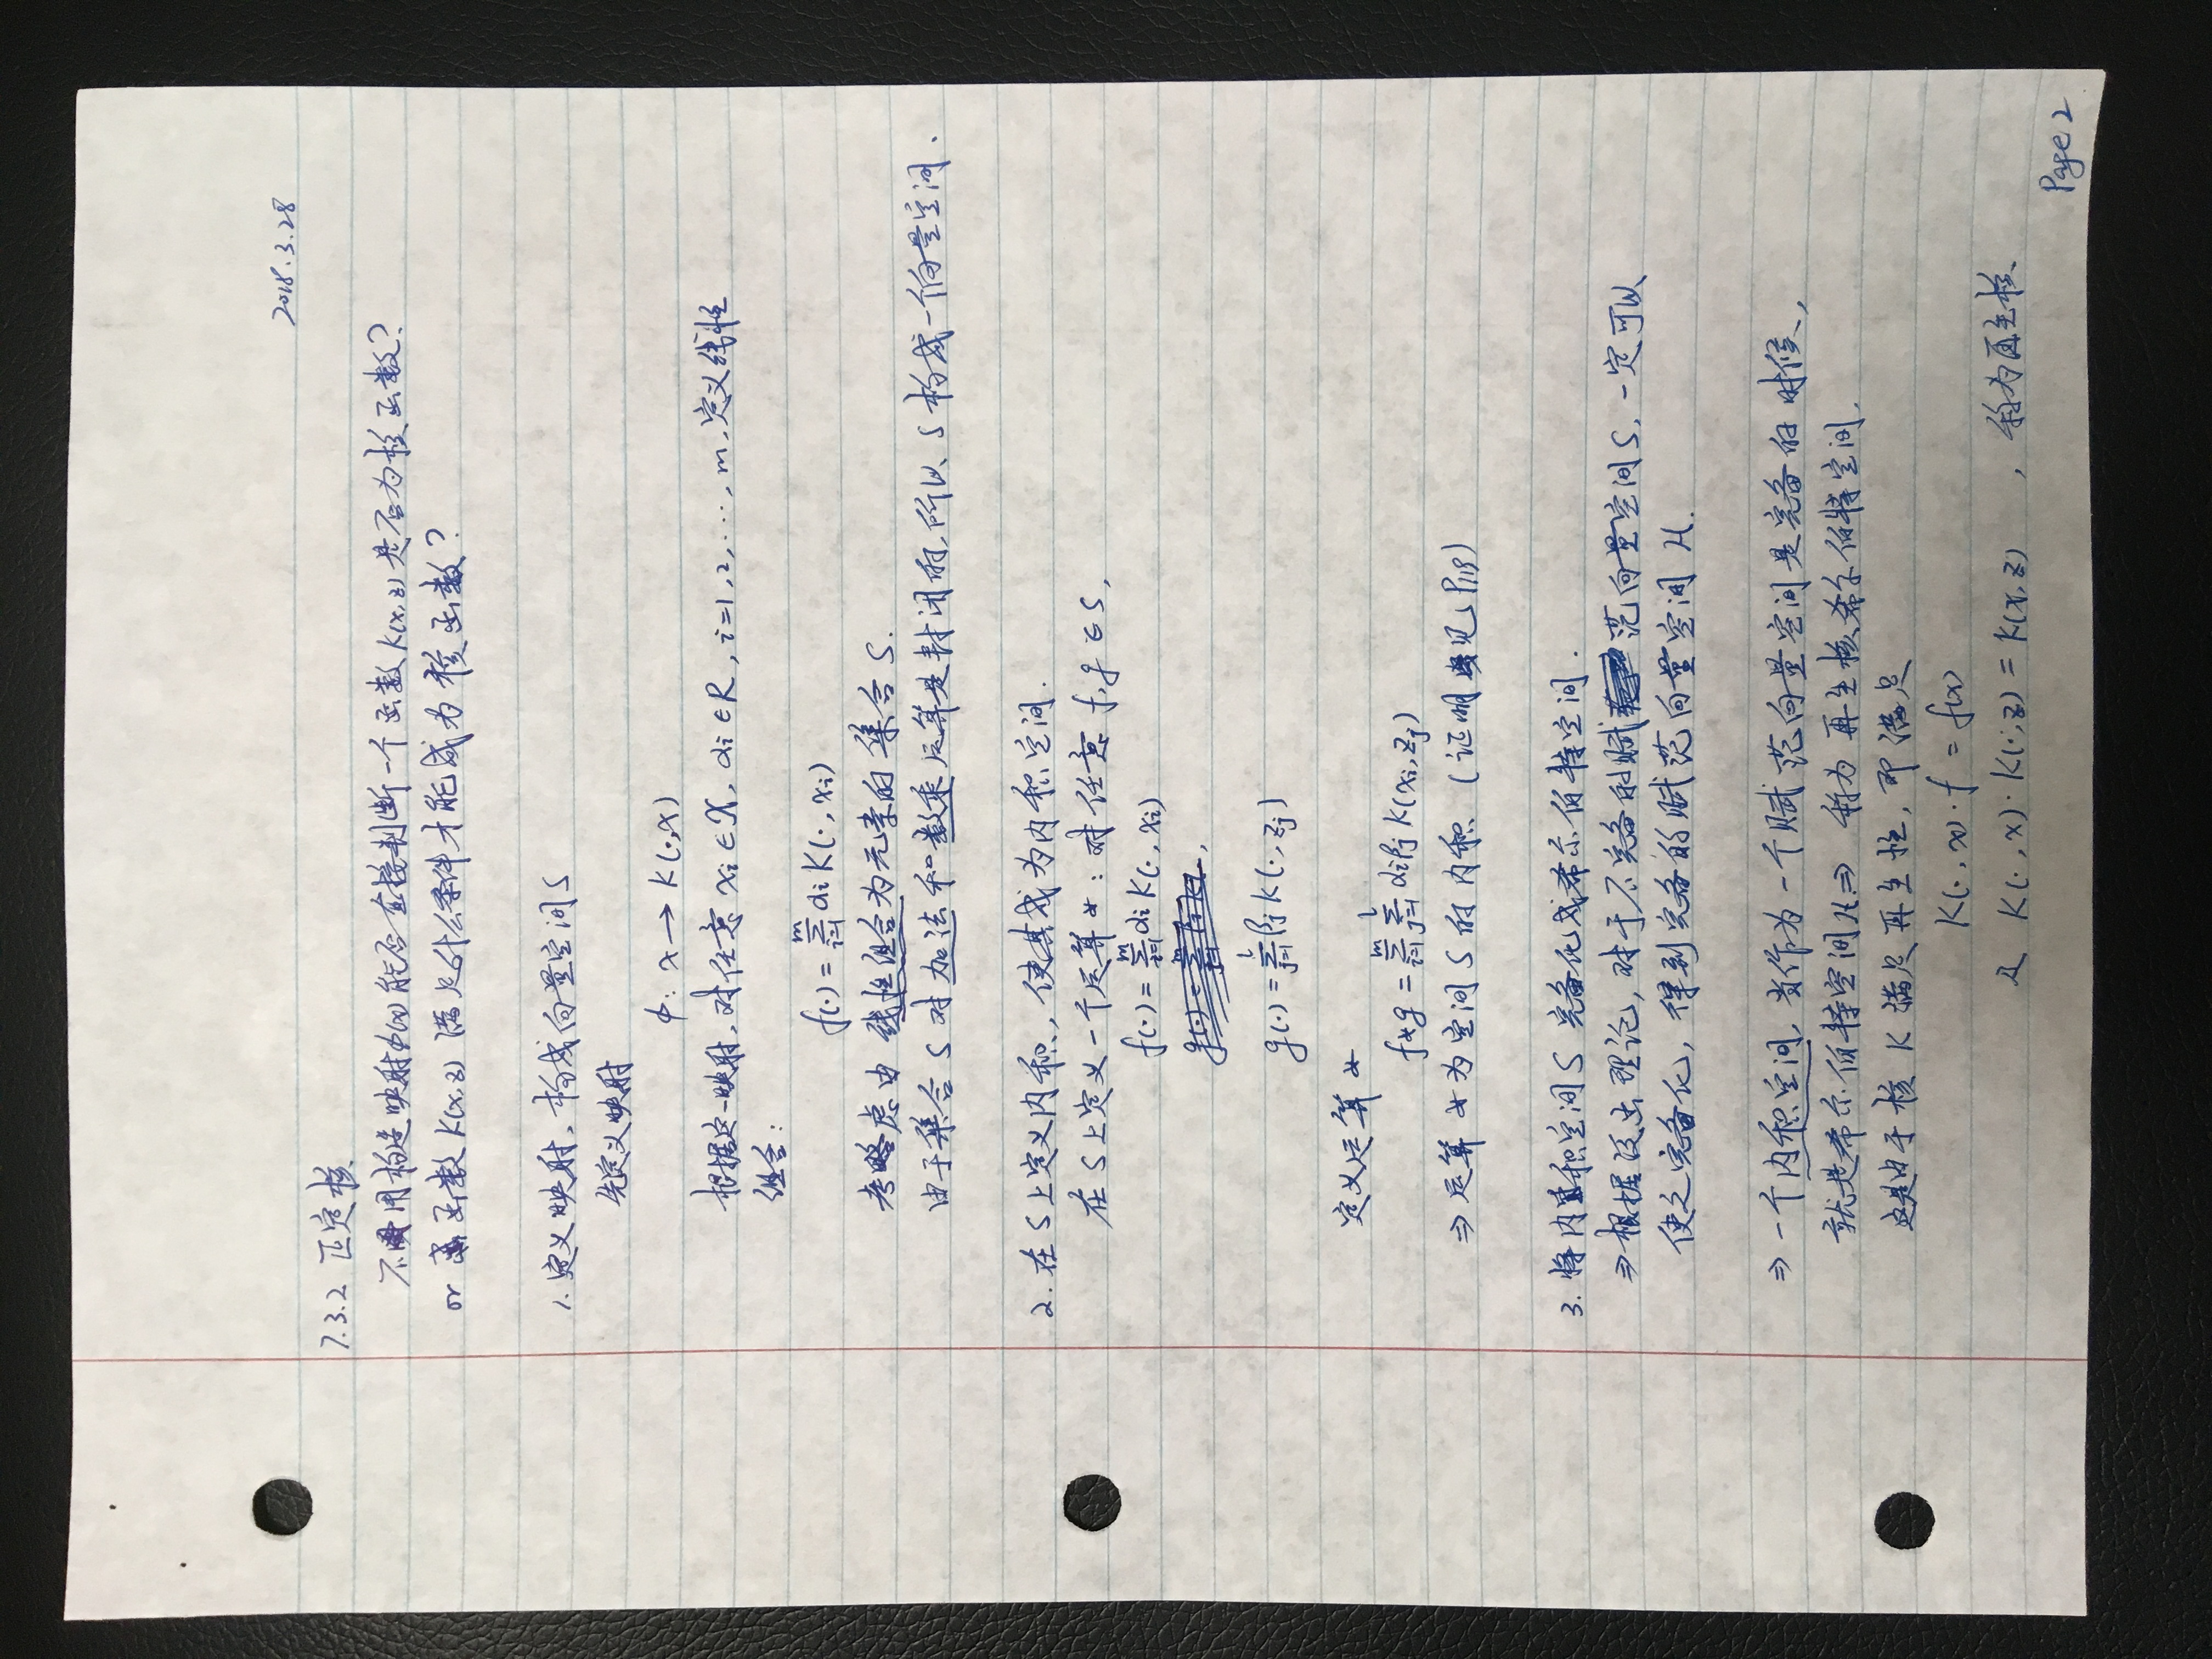 2018.3.28
7.3.2 正定核
不用构造映射φ(x)能否直接判断一个函数K(x,z)是否为核函数?
or 函数K(x,z)满足什么条件才能成为核函数?
1. 定义映射,构成向量空间S
先定义映射
φ: x → K(·,x)
根据这一映射,对任意 xi∈X, αi∈R, i=1,2,...,m,定义线性
组合:
f(·) = Σ_{i=1}^{m} αi K(·,xi)
考虑由线性组合为元素的集合S.
由于集合S对加法和数乘运算是封闭的,所以S构成一个向量空间.
2. 在S上定义内积,使其成为内积空间.
在S上定义一个运算*:对任意f,g∈S,
f(·) = Σ_{i=1}^{m} αi K(·,xi)
g(·) = Σ_{j=1}^{l} βj K(·,zj)
定义运算*
f*g = Σ_{i=1}^{m} Σ_{j=1}^{l} αiβj K(xi,zj)
⇒ 运算*为空间S的内积 (证明见P119)
3. 将内积空间S完备化成希尔伯特空间.
⇒ 根据泛函理论,对于不完备的赋范向量空间S,一定可以
使之完备化,得到完备的赋范向量空间H.
⇒ 一个内积空间,当作为一个赋范向量空间是完备的时候,
就是希尔伯特空间H ⇒ 称为再生核希尔伯特空间.
这是由于核K满足再生性,即满足
K(·,x)·f = f(x)
及 K(·,x)·K(·,z) = K(x,z) ,称为再生核.
Page 2